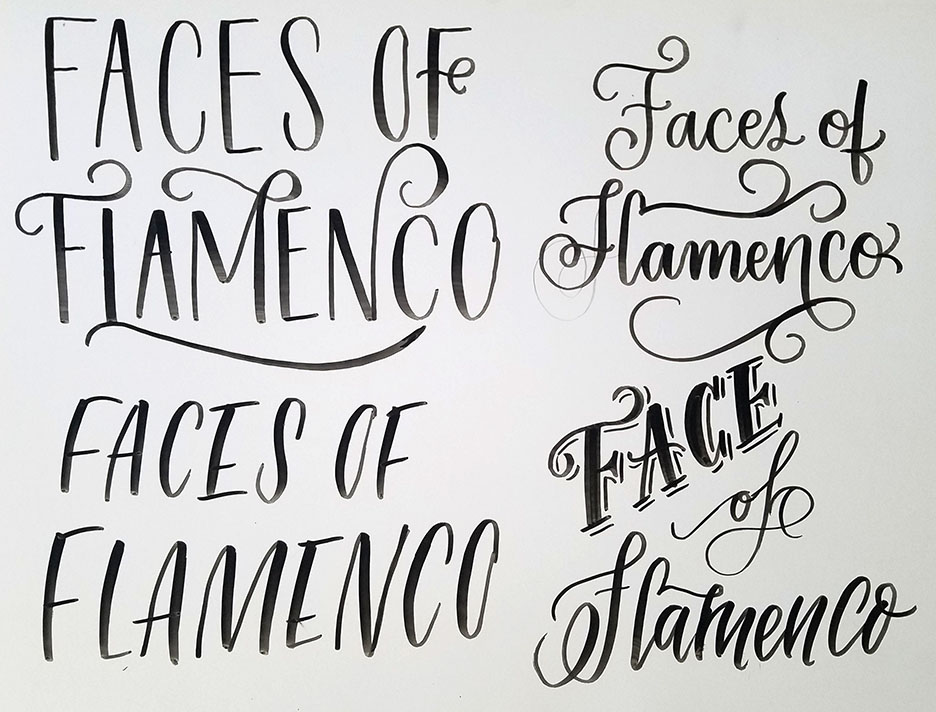 FACES OF
FLAMENCO
FACES OF
FLAMENCO
Faces of
Flamenco
FACE
of
Flamenco